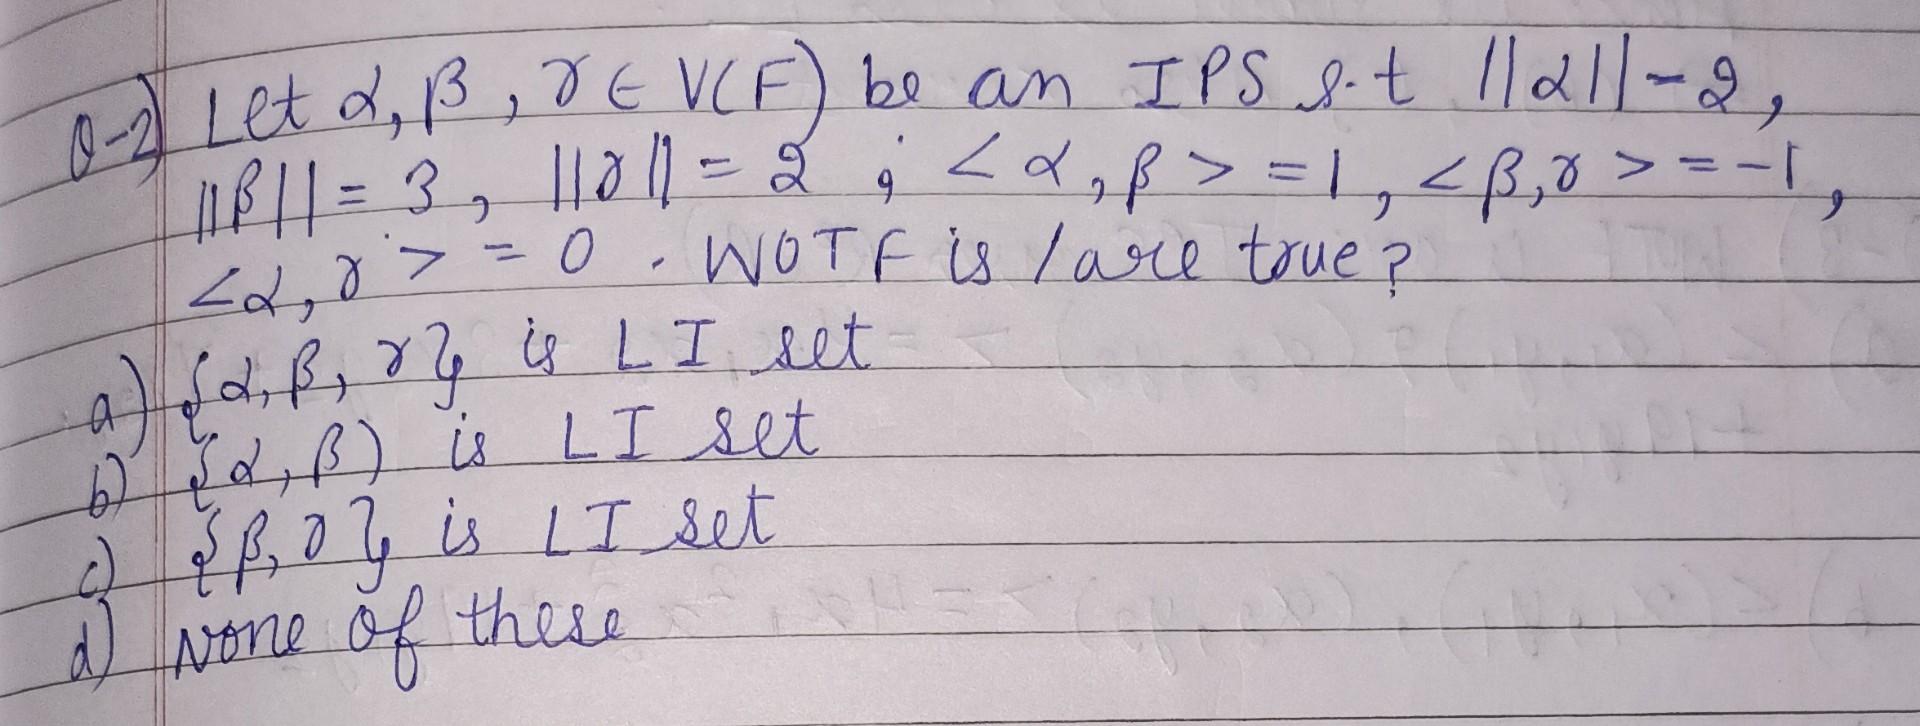 Q-2) Let α, β, γ ∈ V(F) be an IPS s.t ||α|| - 2,
||β|| = 3, ||γ|| = 2 ; <α, β> = 1, <β, γ> = -1,
<α, γ> = 0. WOTF is /are true?
a) {α, β, γ} is LI set
b) {α, β) is LI set
c) {β, γ} is LI set
d) None of these